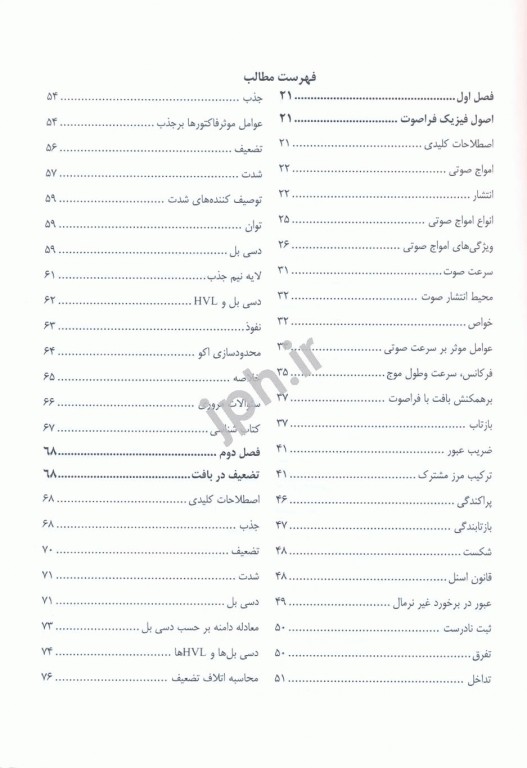 فهرست مطالب
فصل اول ........ ۲۱
اصول فیزیک فراصوت ........ ۲۱
اصطلاحات کلیدی ........ ۲۱
امواج صوتی ........ ۲۲
انتشار ........ ۲۲
انواع امواج صوتی ........ ۲۵
ویژگی‌های امواج صوتی ........ ۲۶
سرعت صوت ........ ۳۱
محیط انتشار صوت ........ ۳۲
خواص ........ ۳۲
عوامل موثر بر سرعت صوتی ........
فرکانس، سرعت وطول موج ........ ۳۵
برهمکنش بافت با فراصوت ........ ۳۷
بازتاب ........ ۳۷
ضریب عبور ........ ۴۱
ترکیب مرز مشترک ........ ۴۱
پراکندگی ........ ۴۶
بازتابندگی ........ ۴۷
شکست ........ ۴۸
قانون اسنل ........ ۴۸
عبور در برخورد غیر نرمال ........ ۴۹
ثبت نادرست ........ ۵۰
تفرق ........ ۵۰
تداخل ........ ۵۱
جذب ........ ۵۴
عوامل موثرفاکتورها برجذب ........ ۵۴
تضعیف ........ ۵۶
شدت ........ ۵۷
توصیف کننده‌های شدت ........ ۵۹
توان ........ ۵۹
دسی بل ........ ۵۹
لایه نیم جذب ........ ۶۱
دسی بل و HVL ........ ۶۲
نفوذ ........ ۶۳
محدودسازی اکو ........ ۶۴
خلاصه ........ ۶۵
سوالات مروری ........ ۶۶
کتاب شناسی ........ ۶۷
فصل دوم ........ ۶۸
تضعیف در بافت ........ ۶۸
اصطلاحات کلیدی ........ ۶۸
جذب ........ ۶۸
تضعیف ........ ۷۰
شدت ........ ۷۱
دسی بل ........ ۷۱
معادله دامنه بر حسب دسی بل ........ ۷۳
دسی بل‌ها و HVLها ........ ۷۴
محاسبه اتلاف تضعیف ........ ۷۶
jph.ir